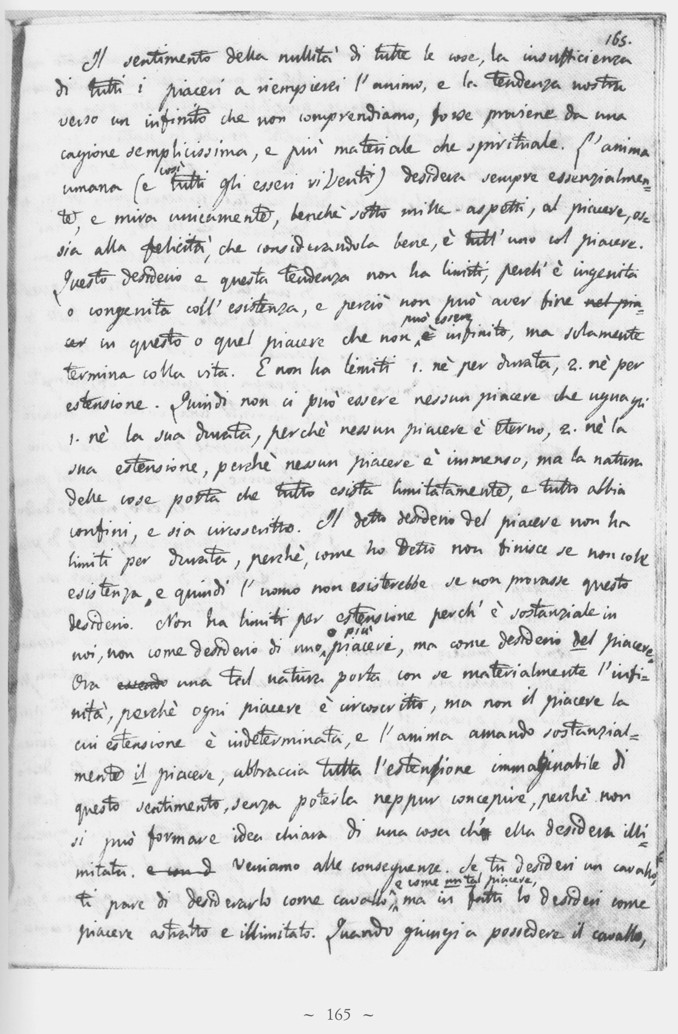 165.
Il sentimento della nullità di tutte le cose, la insufficienza
di tutti i piaceri a riempierci l'animo, e la tendenza nostra
verso un infinito che non comprendiamo, forse proviene da una
cagione semplicissima, e più materiale che spirituale. L'anima
umana (e così tutti gli esseri viventi) desidera sempre essenzialmen-
te, e mira unicamente, benchè sotto mille aspetti, al piacere, os-
sia alla felicità, che considerandola bene, è tutt'uno col piacere.
Questo desiderio e questa tendenza non ha limiti, perch'è ingenita
o congenita coll'esistenza, e perciò non può aver fine nel pia-
cer in questo o quel piacere che non può essere è infinito, ma solamente
termina colla vita. E non ha limiti 1. nè per durata, 2. nè per
estensione. Quindi non ci può essere nessun piacere che uguagli
1. nè la sua durata, perchè nessun piacere è eterno, 2. nè la
sua estensione, perchè nessun piacere è immenso, ma la natura
delle cose porta che tutto esista limitatamente, e tutto abbia
confini, e sia circoscritto. Il detto desiderio del piacere non ha
limiti per durata, perchè, come ho detto non finisce se non coll'
esistenza, e quindi l'uomo non esisterebbe se non provasse questo
desiderio. Non ha limiti per estensione perch'è sostanziale in
noi, non come desiderio di uno o più piaceri, ma come desiderio del piacere.
Ora essendo una tal natura porta con se materialmente l'infi-
nità, perchè ogni piacere è circoscritto, ma non il piacere la
cui estensione è indeterminata, e l'anima amando sostanzial-
mente il piacere, abbraccia tutta l'estensione immaginabile di
questo sentimento, senza poterla neppur concepire, perchè non
si può formare idea chiara di una cosa ch' ella desidera illi-
mitata. Veniamo alle conseguenze. Se tu desideri un cavallo,
ti pare di desiderarlo come cavallo, e come un tal piacere, ma in fatti lo desideri come
piacere astratto e illimitato. Quando giungi a possedere il cavallo,
~ 165 ~